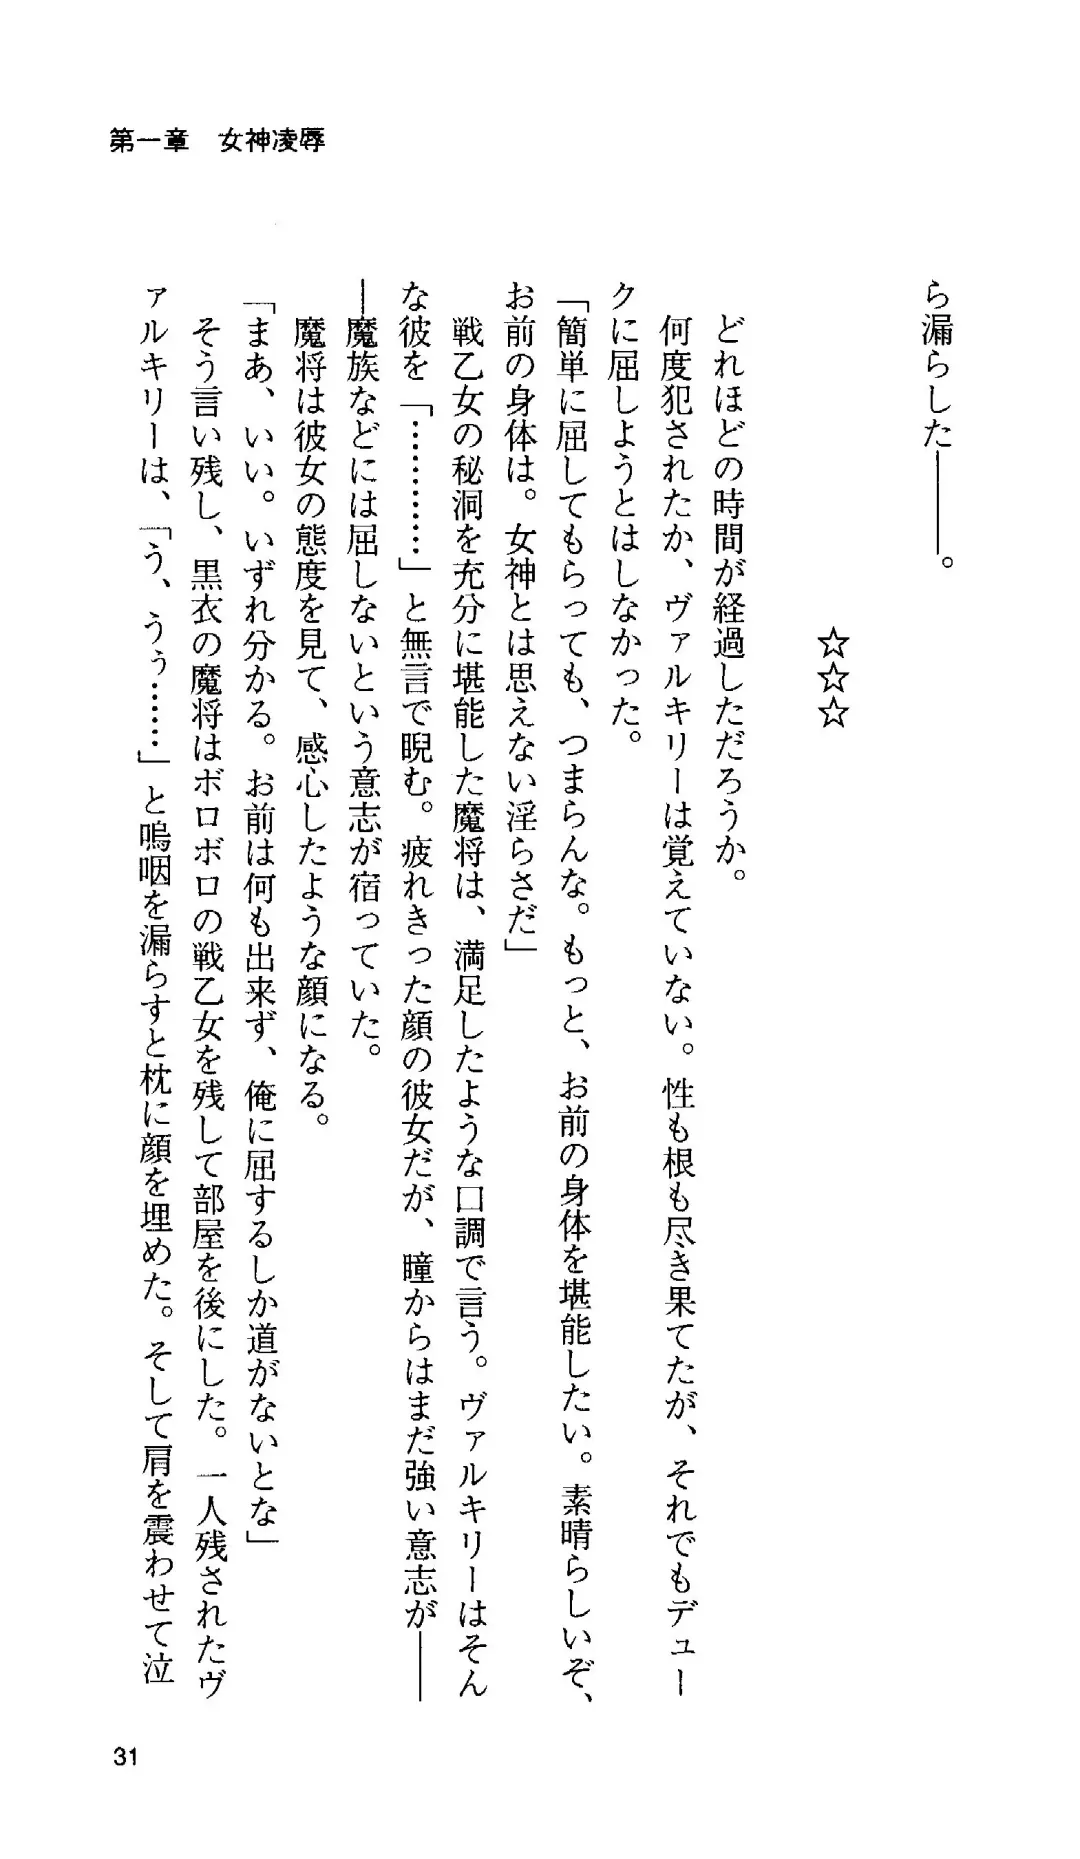 第一章　女神凌辱
ら漏らした――――。
☆☆☆
どれほどの時間が経過しただろうか。
何度犯されたか、ヴァルキリーは覚えていない。性も根も尽き果てたが、それでもデュー
クに屈しようとはしなかった。
「簡単に屈してもらっても、つまらんな。もっと、お前の身体を堪能したい。素晴らしいぞ、
お前の身体は。女神とは思えない淫らさだ」
戦乙女の秘洞を充分に堪能した魔将は、満足したような口調で言う。ヴァルキリーはそん
な彼を「…………」と無言で睨む。疲れきった顔の彼女だが、瞳からはまだ強い意志が――
―魔族などには屈しないという意志が宿っていた。
魔将は彼女の態度を見て、感心したような顔になる。
「まあ、いい。いずれ分かる。お前は何も出来ず、俺に屈するしか道がないとな」
そう言い残し、黒衣の魔将はボロボロの戦乙女を残して部屋を後にした。一人残されたヴ
ァルキリーは、「う、うぅ……」と嗚咽を漏らすと枕に顔を埋めた。そして肩を震わせて泣
31